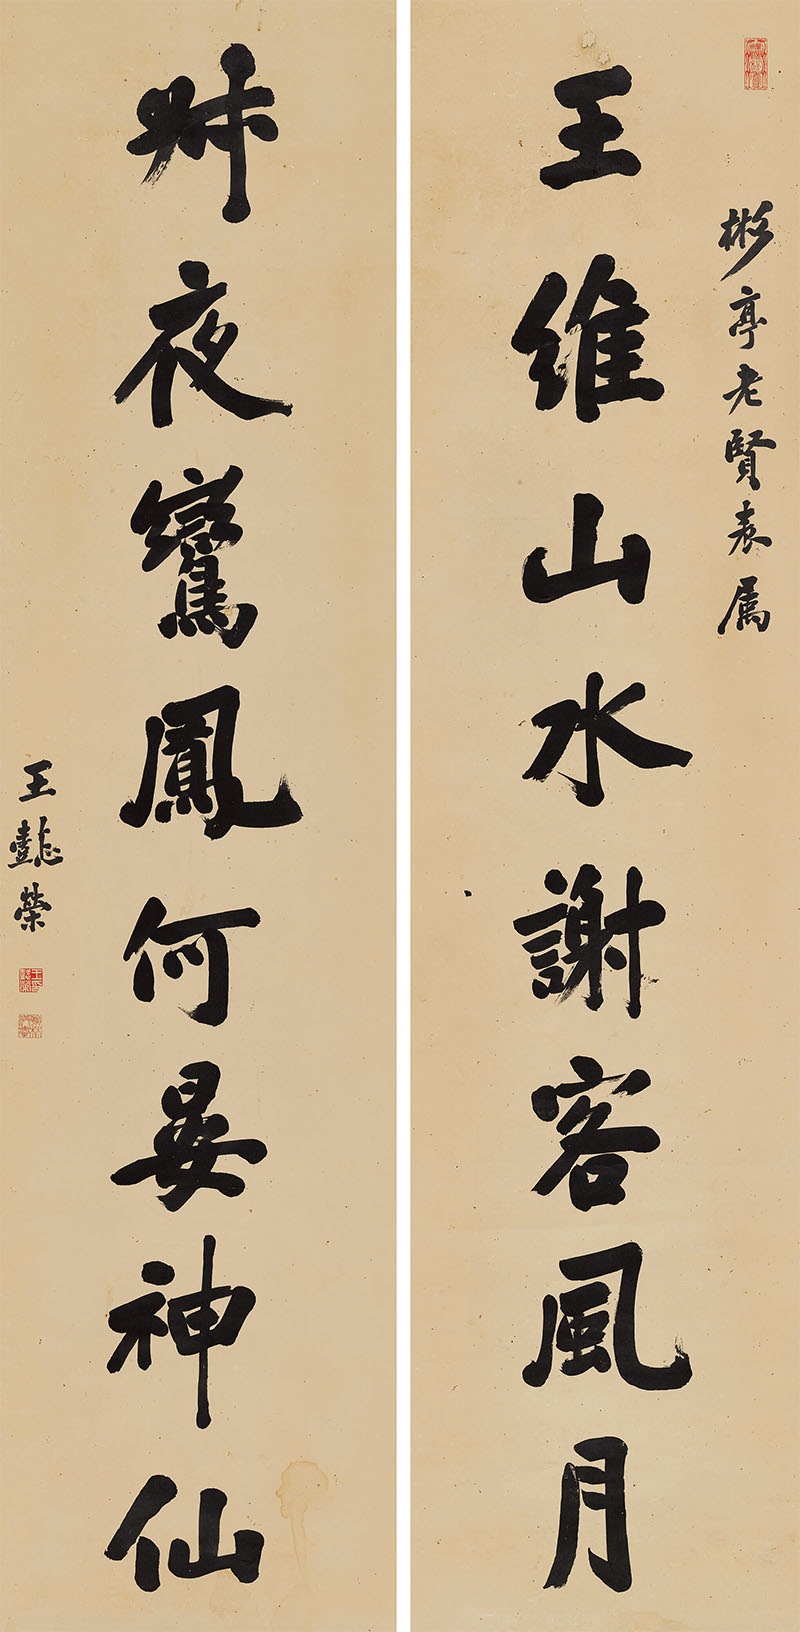 彬亭老賢表属
王維山水謝客風月
叔夜鸞鳳何晏神仙
王懿榮